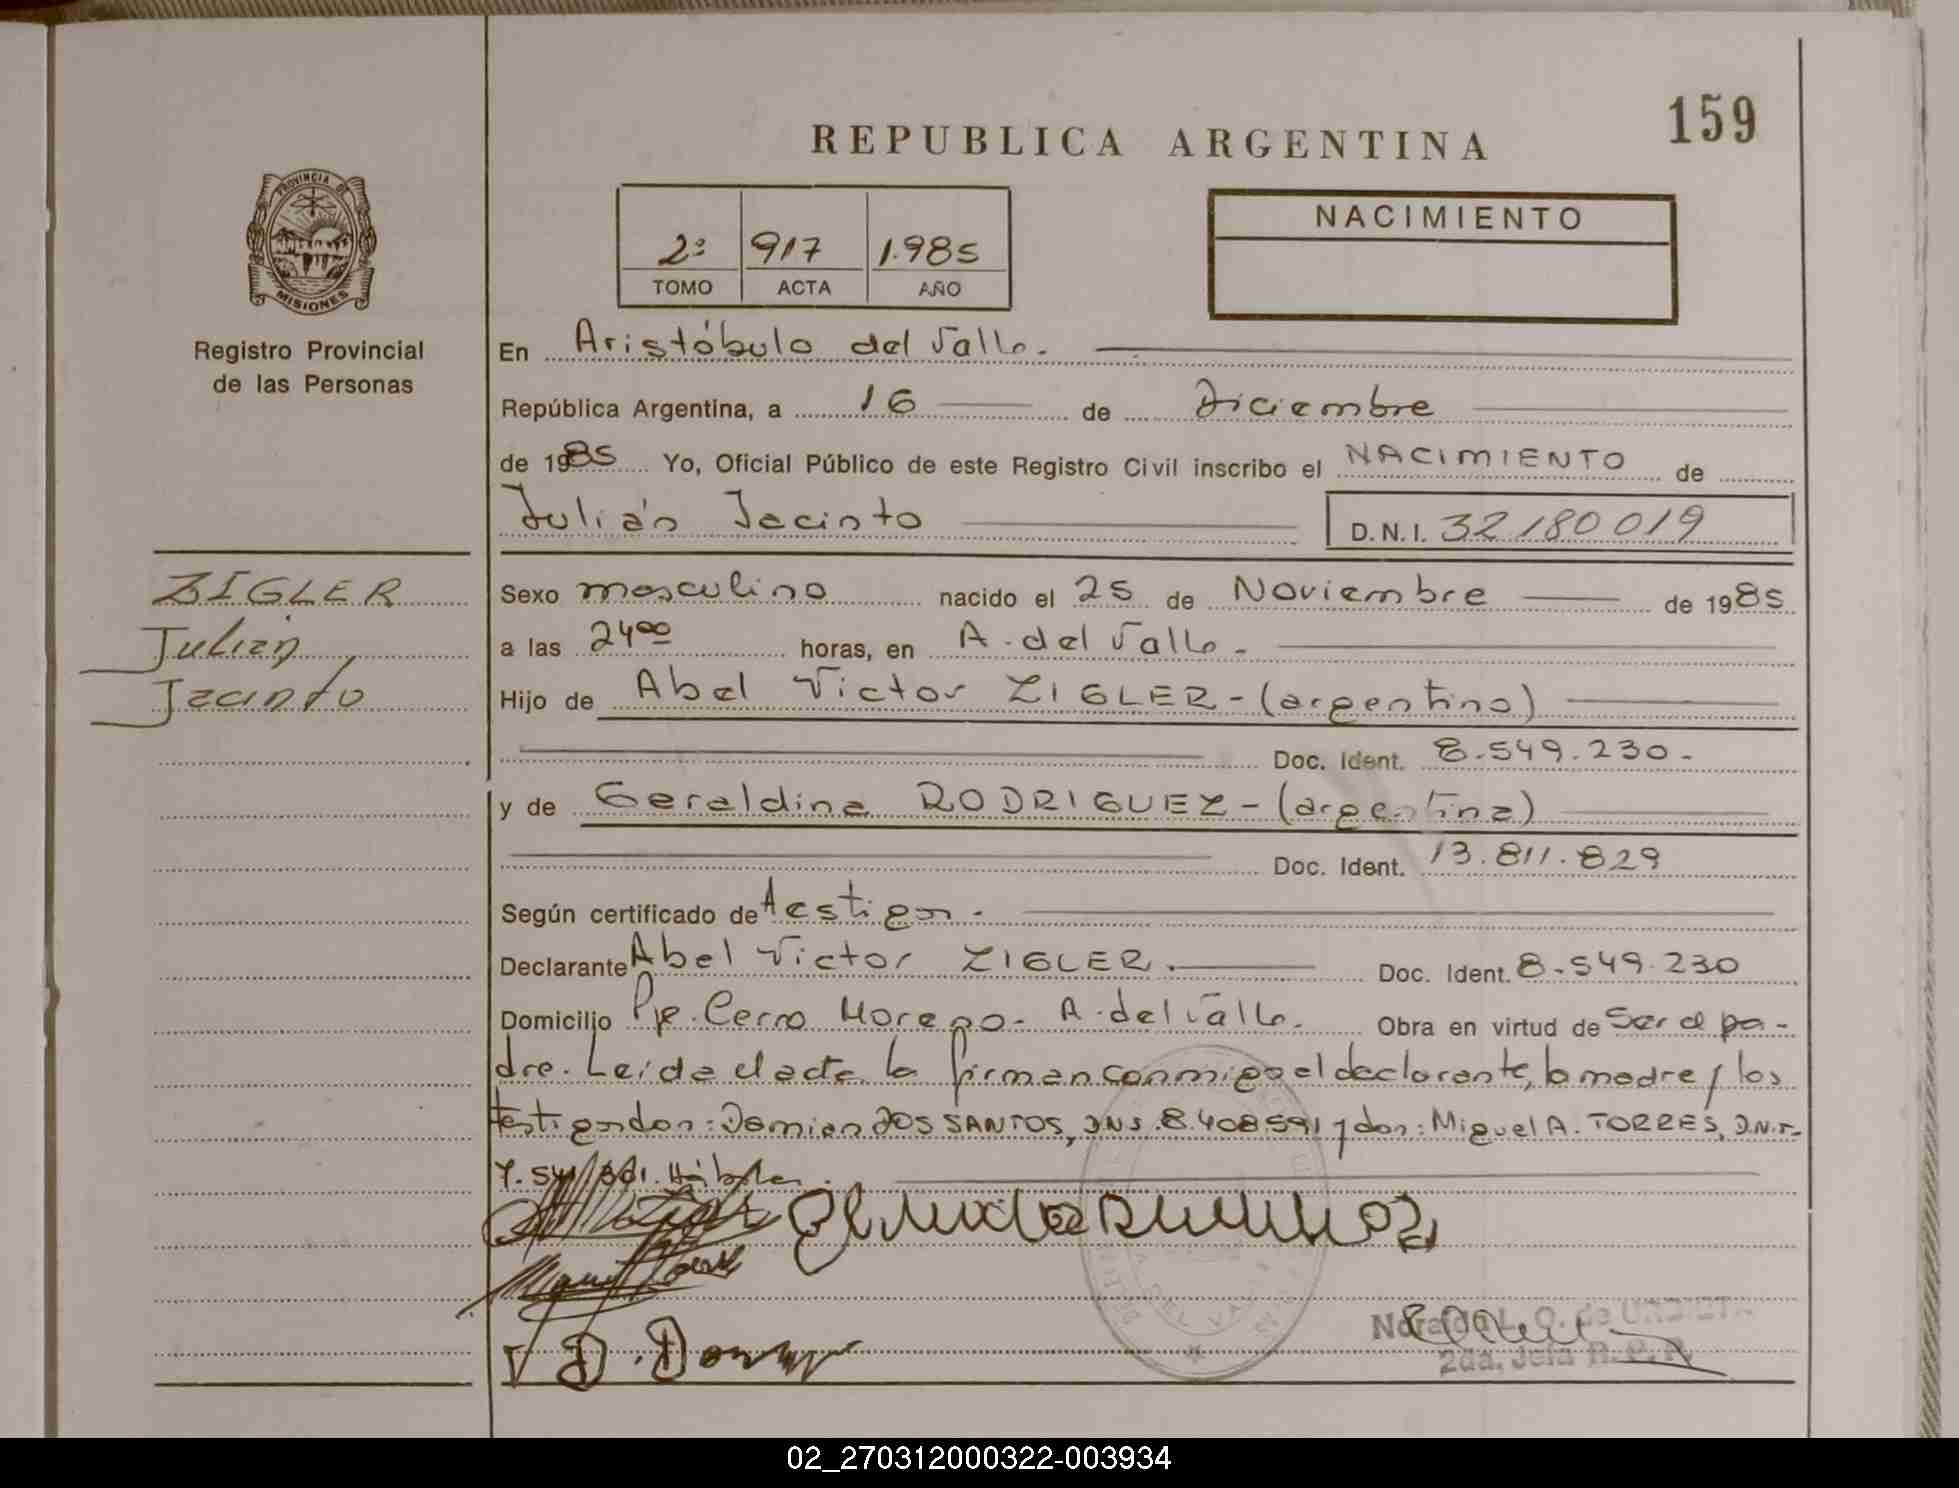 159
REPUBLICA ARGENTINA
PROVINCIA DE
MISIONES
Registro Provincial
de las Personas
2º 917 1.985
TOMO ACTA AÑO
NACIMIENTO
En Aristóbulo del Valle.
República Argentina, a 16 de Diciembre
de 1985 Yo, Oficial Público de este Registro Civil inscribo el NACIMIENTO de
Julián Jacinto D.N.I. 32180019
ZIGLER
Julián
Jacinto
Sexo masculino nacido el 25 de Noviembre de 1985
a las 24⁰⁰ horas, en A. del Valle.
Hijo de Abel Victor ZIGLER - (argentino)
Doc. Ident. 8.549.230.
y de Geraldina RODRIGUEZ - (argentina)
Doc. Ident. 13.811.829
Según certificado de
Declarante Abel Victor ZIGLER. Doc. Ident. 8.549.230
Domicilio Pje. Cerro Moreno - A. del Valle. Obra en virtud de ser el pa-
dre. Leida el acta la firman conmigo el declarante, la madre y los
Damian DOS SANTOS, DNI 8.408.591 y don: Miguel A. TORRES, D.N.I.
2da. Jefa R. P. P.
02_270312000322-003934